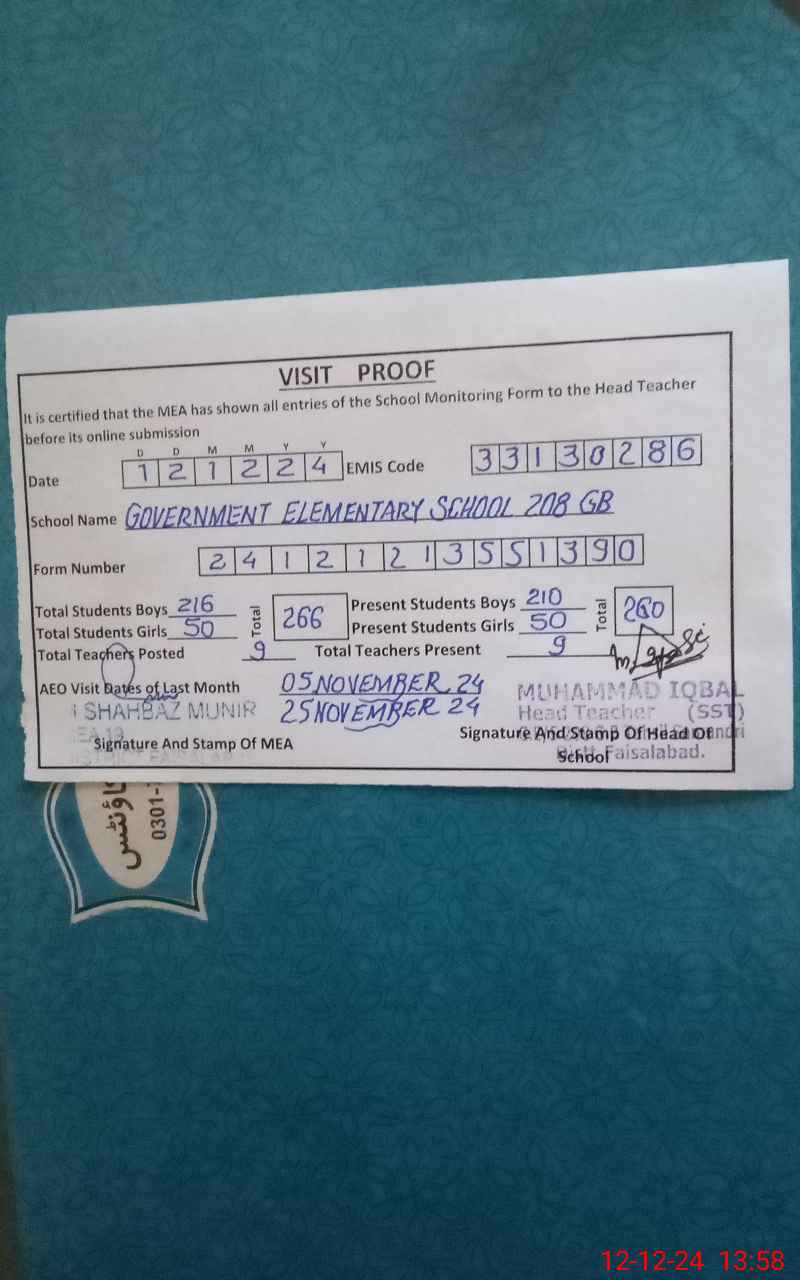 VISIT PROOF
It is certified that the MEA has shown all entries of the School Monitoring Form to the Head Teacher
before its online submission
D D M M Y Y
Date 1 2 1 2 2 4 EMIS Code 3 3 1 3 0 2 8 6
School Name GOVERNMENT ELEMENTARY SCHOOL 208 GB
Form Number 2 4 1 2 1 2 1 3 5 5 1 3 9 0
Total Students Boys 216 Total 266 Present Students Boys 210 Total 260
Total Students Girls 50 Present Students Girls 50
Total Teachers Posted 9 Total Teachers Present 9
AEO Visit Dates of Last Month 05 NOVEMBER 24
25 NOVEMBER 24
SHAHBAZ MUNIR
Signature And Stamp Of MEA
MUHAMMAD IQBAL
Head Teacher (SST)
Signature And Stamp Of Head Of
School
Faisalabad.
0301-
12-12-24 13:58